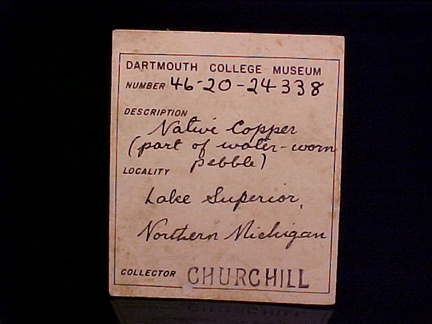 DARTMOUTH COLLEGE MUSEUM
NUMBER 46-20-24338
DESCRIPTION
Native Copper
(part of water-worn
pebble)
LOCALITY
Lake Superior,
Northern Michigan
COLLECTOR CHURCHILL